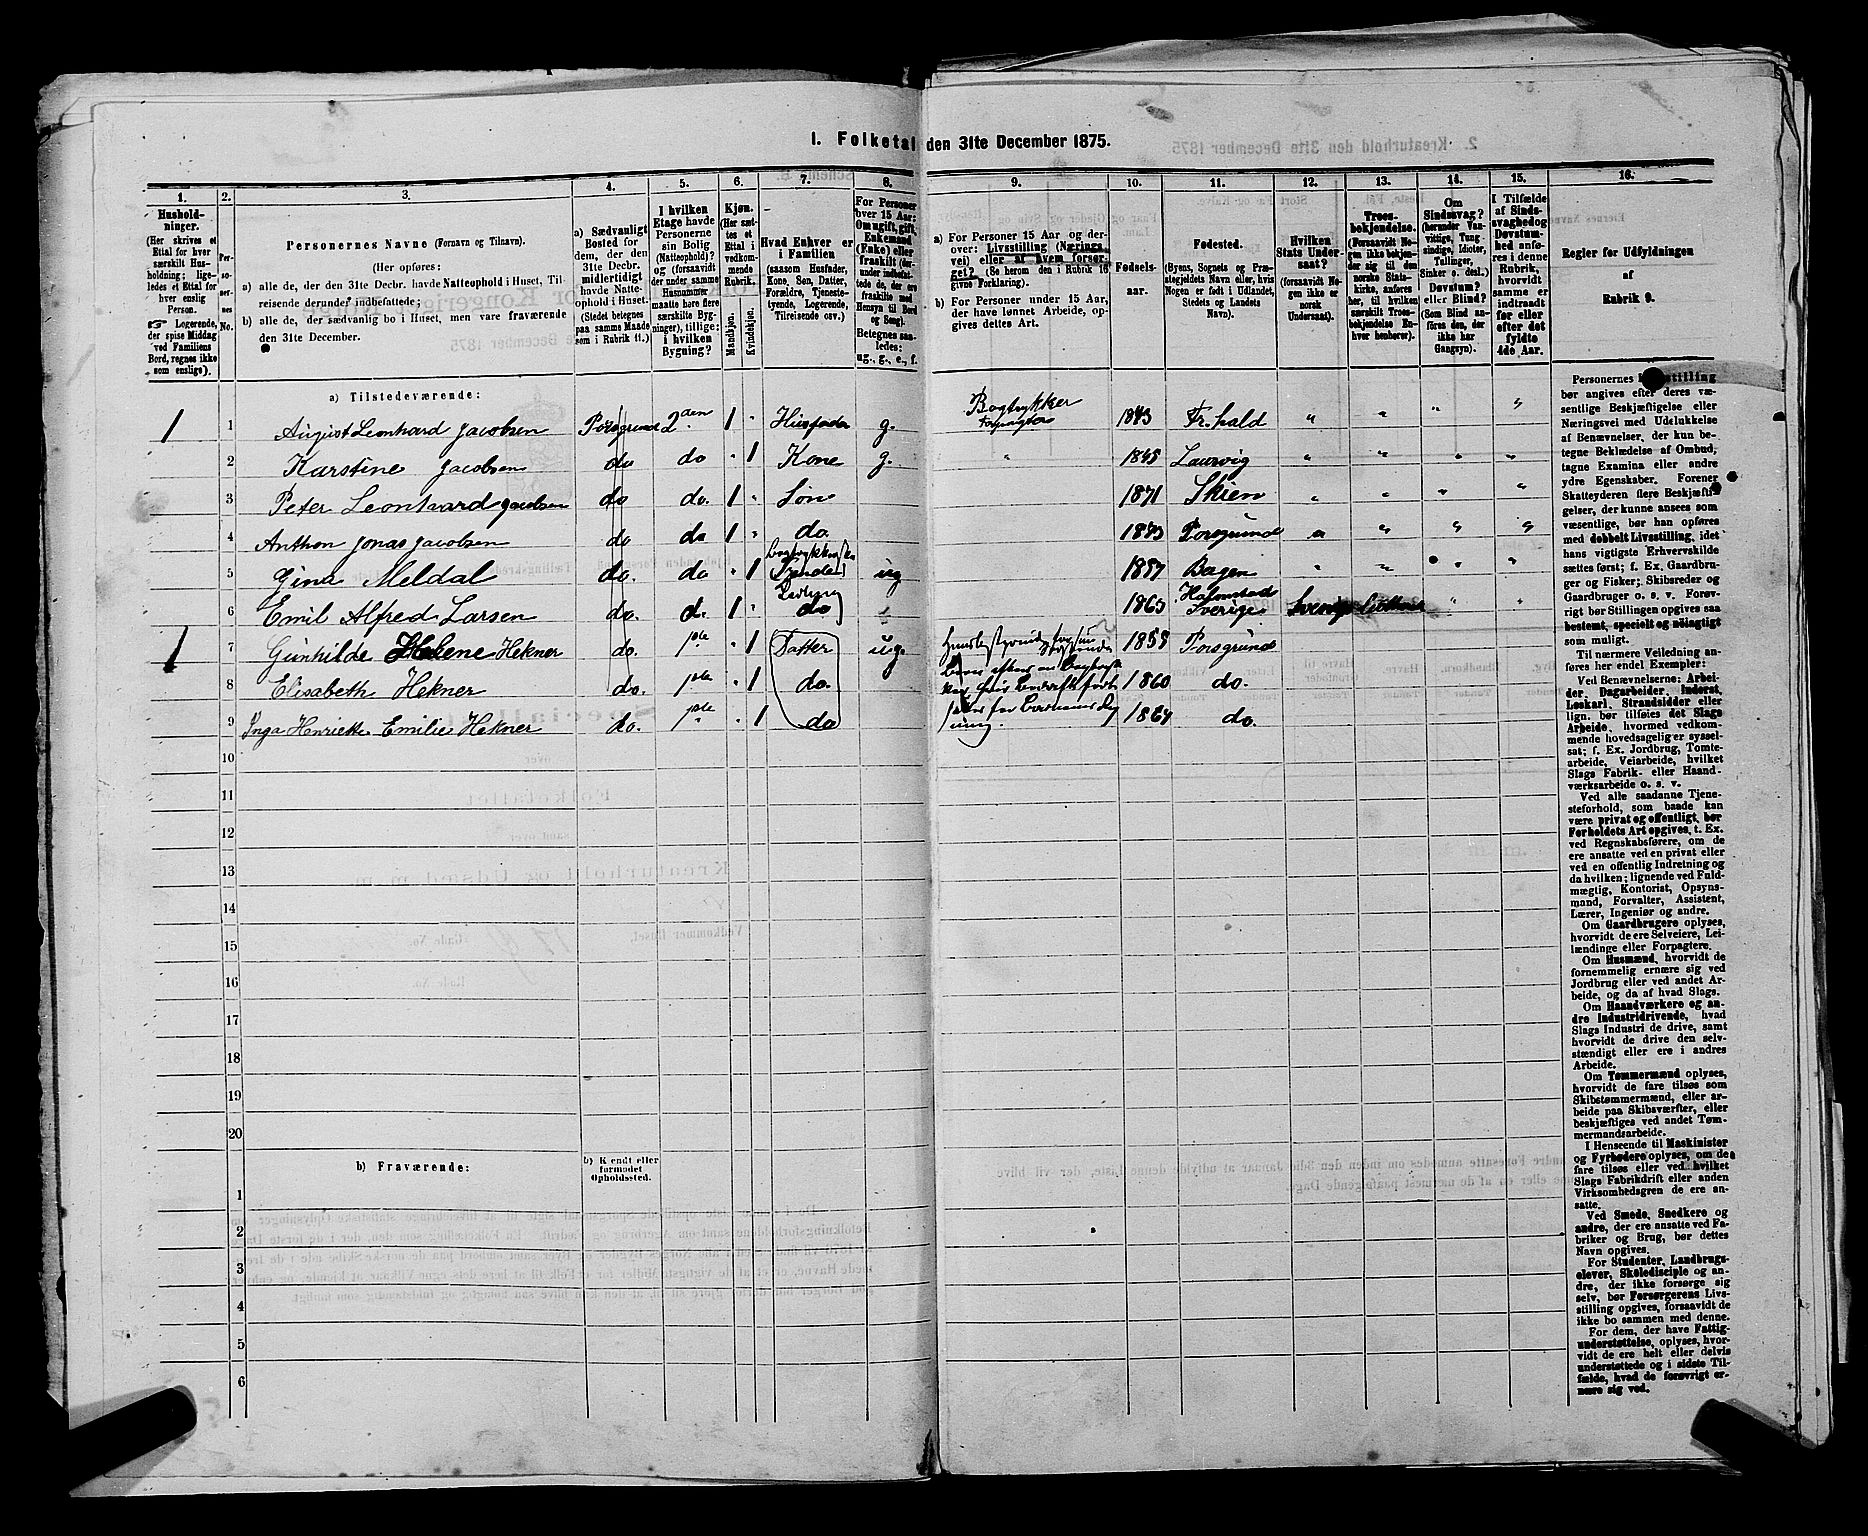 1. Folketal den 31te December 1875.
1.
2.
3.
4.
5.
6.
7.
8.
9.
10.
11.
12.
13.
14.
15.
16.
Hushold-
ninger.
(Her skrives et
Ettal for hver
særskilt Hus-
holdning; lige-
ledes et Ettal for
hver enslig
Person.
☞ Logerende,
der spise Middag
ved Familiens
Bord, regnes ikke
som enslige).
Per-
so-
ner-
nes
No.
Personernes Navne (Fornavn og Tilnavn).
(Her opføres:
a) alle de, der den 31te Decbr. havde Natteophold i Huset, Til-
reisende derunder indbefattede;
b) alle de, der sædvanlig bo i Huset, men vare fraværende
den 31te December.
a) Sædvanligt
Bosted for
dem, der den
31te Decbr.
midlertidigt
havde Natte-
ophold i Huset.
(Stedet betegnes
paa samme Maade
som i Rubrik 11.)
I hvilken
Etage havde
Personerne
sin Bolig
(Natteophold)?
og (forsaavidt
der under samme
Husnummer
maatte høre flere
særskilte Byg-
ninger), tillige:
i hvilken
Bygning?
Kjøn.
(Her sæt-
tes et
Ettal i
vedkom-
mende
Rubrik.
Mandkjøn.
Kvindekjøn.
Hvad Enhver er
i Familien
(saasom Husfader,
Kone, Søn, Datter,
Forældre, Tjeneste-
tyende, Logerende,
Tilreisende osv.)
For Personer
over 15 Aar:
Om ugift, gift,
Enkemand
(Enke) eller
fraskilt (der-
under indbefat-
tede de, der ere
fraskilte med
Hensyn til Bord
og Seng).
Betegnes saa-
ledes:
ug., g., e., f.
a) For Personer 15 Aar og der-
over: Livsstilling (Nærings-
vei) eller af hvem forsør-
get? (Se herom den i Rubrik 16
givne Forklaring).
b) For Personer under 15 Aar,
der have lønnet Arbeide, op-
gives dettes Art.
Fødsels-
aar.
Fødested.
(Byens, Sognets og Præ-
stegjeldets Navn eller, hvis
Nogen er født i Udlandet,
Stedets og Landets
Navn).
Hvilken
Stats Under-
saat?
(forsaavidt No-
gen ikke er
norsk
Undersaat).
Troes-
bekjendelse.
(Forsaavidt No-
gen ikke bekjen-
der sig til den
norske Stats-
kirke, anføres
her, til hvilken
særskilt Troes-
bekjendelse En-
hver henhører).
Om
Sindssvag?
(herunder Van-
vittige, Tung-
sindige, Idioter,
Tullinger,
Sinker o. desl.)
Døvstum?
eller Blind?
(Som Blind an-
føres den, der
ikke har
Gangsyn).
I Tilfælde
af Sinds-
svaghed og
Døvstum-
hed anfø-
res i denne
Rubrik,
hvorvidt
samme er
indtraadt
før eller
efter det
fyldte
4de Aar.
Regler for Udfyldningen
af
Rubrik 9.
a) Tilstedeværende:
1 1 August Leonhard Jacobsen Porsgrund 2den 1 " Husfader g. Bogtrykker 1843 Fr.hald " " " "
2 Karstine Jacobsen do do " 1 Kone g. " 1845 Laurvig " " " "
3 Peter Leonhaard Jacobsen do do. 1 " Søn 1871 Skien " " " "
4 Anthon Jonas Jacobsen do do 1 " do. 1873 Porsgrund " " " "
5 Gina Meldal do. do " 1 ug 1857 " " " "
6 Emil Alfred Larsen do. d. 1 " do 1863 Halmstad Sverige " "
1 7 Gunhilde Helene Hekner do. 1ste " 1 Datter ug. 1855 Porsgrund
8 Elisabeth Hekner do. 1ste " 1 do. 1860 do.
9 Inga Henriette Emilie Hekner do. 1ste " 1 do 1864 do.
10
11
12
13
14
15
16
17
18
19
20
b) Fraværende:
b) Kjendt eller
formodet
Opholdssted.
1
2
3
4
5
6
Personernes Livsstilling
bør angives efter deres væ-
sentlige Beskjæftigelse eller
Næringsvei med Udelukkelse
af Benævnelser, der kun be-
tegne Beklædelse af Ombud,
tagne Examina eller andre
ydre Egenskaber. Forener
Skatteyderen flere Beskjæfti-
gelser, der kunne ansees som
væsentlige, bør han opføres
med dobbelt Livsstilling, idet
hans vigtigste Erhvervskilde
sættes først; f. Ex. Gaardbru-
ger og Fisker; Skibsreder og
Gaardbruger o. s. v. Forøv-
rigt bør Stillingen opgives saa
bestemt, specielt og nöiagtigt
som muligt.
Til nærmere Veiledning an-
føres her endel Exempler:
Ved Benævnelserne: Arbei-
der, Dagarbeider, Inderst,
Løskarl, Strandsidder eller
lign. bør tilføies det Slags
Arbeide, hvormed vedkom-
mende hovedsagelig er syssel-
sat; f. Ex. Jordbrug, Tomte-
arbeide, Veiarbeide, hvilket
Slags Fabrik- eller Haand-
værksarbeide o. s. v.
Ved alle saadanne Tjene-
steforhold, som baade kan
være privat og offentligt, bør
Forholdets Art opgives, t. Ex.
ved Regnskabsførere, om de
ere ansatte ved en privat eller
ved en offentlig Indretning og
da hvilken; lignende ved Fuld-
mægtig, Kontorist, Opsyns-
mand, Forvalter, Assistent,
Lærer, Ingeniør og andre.
Om Gaardbrugere oplyses,
hvorvidt de ere Selveiere, Lei-
lændinge eller Forpagtere.
Om Husmænd, hvorvidt de
fornemmelig ernære sig ved
Jordbrug eller ved andet Ar-
beide, og da af hvad Slags.
Om Haandværkere og an-
dre Industridrivende, hvad
Slags Industri de drive, samt
hvorvidt de drive den selv-
stændigt eller ere i andres
Arbeide.
Om Tømmermænd oplyses,
hvorvidt de fare tilsøs som
Skibstømmermænd, eller ar-
beide paa Skibsværfter, eller
beskjæftiges ved andet Tøm-
mermandsarbeide.
I Henseende til Maskinister
og Fyrbødere oplyses, om de
fare tilsøs eller ved hvilket
Slags Fabrikdrift eller anden
Virksomhedsgren de ere an-
satte.
Ved Smede, Snedkere og
andre, der ere ansatte ved Fa-
briker og Brug, bør dettes
Navn opgives.
For Studenter, Landbrugs-
elever, Skoledisciple og an-
dre, der ikke forsørge sig
selv, bør Forsørgerens Livs-
stilling opgives, forsaavidt de
ikke bo sammen med denne.
For dem, der have Fattig-
understøttelse, oplyses, hvor-
vidt de ere helt eller delvis
understøttede og i sidste Til-
fælde, hvad de forøvrigt er-
nære sig ved.